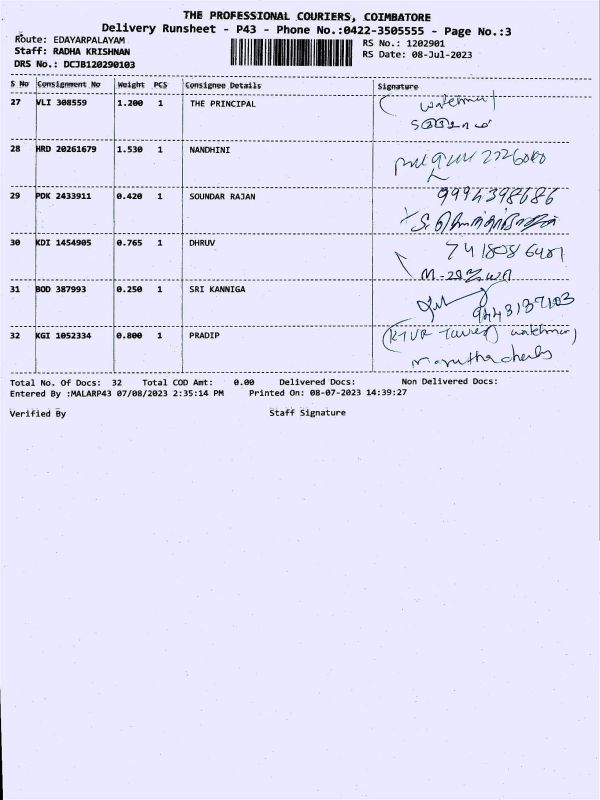 THE PROFESSIONAL COURIERS, COIMBATORE
Delivery Runsheet - P43 - Phone No.:0422-3505555 - Page No.:3
Route: EDAYARPALAYAM
Staff: RADHA KRISHNAN
DRS No.: DCJB120290103
RS No.: 1202901
RS Date: 08-Jul-2023
S No Consignment No Weight PCS Consignee Details Signature
27 VLI 308559 1.200 1 THE PRINCIPAL
28 HRD 20261679 1.530 1 NANDHINI
29 PDK 2433911 0.420 1 SOUNDAR RAJAN
30 KDI 1454905 0.765 1 DHRUV
31 BOD 387993 0.250 1 SRI KANNIGA
9443137103
32 KGI 1052334 0.800 1 PRADIP (KTVR Tower) watchman)
Total No. Of Docs: 32 Total COD Amt: 0.00 Delivered Docs: Non Delivered Docs:
Entered By :MALARP43 07/08/2023 2:35:14 PM Printed On: 08-07-2023 14:39:27
Verified By Staff Signature